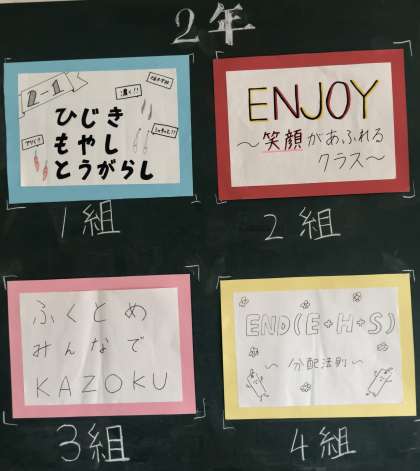 2年
2-1
濃く!!
ひじき
もやし
とうがらし
1組
ENJOY
～笑顔があふれる
クラス～
2組
ふくとめ
みんなで
KAZOKU
3組
END(E+H+S)
～分配法則～
4組